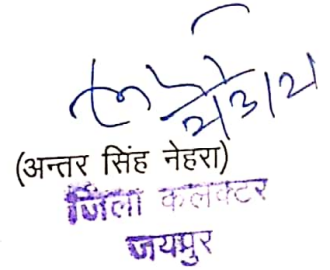 (अन्तर सिंह नेहरा)
जिला कलक्टर
जयपुर